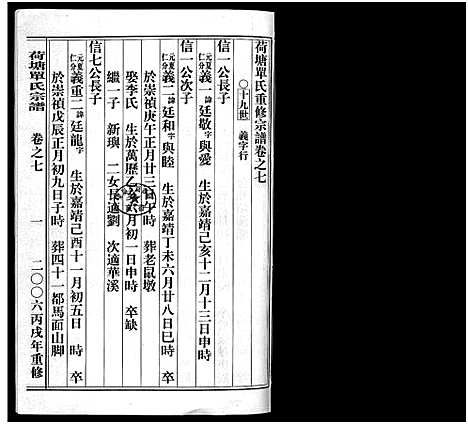 荷塘單氏重修宗譜卷之七
○十九世 義字行
信一公長子
元夏仁分 義一 諱廷敬 字與愛 生於嘉靖己亥十二月十三日申時
信一公次子
元夏仁分 義二 諱廷和 字與睦 生於嘉靖丁未六月廿八日巳時 卒
於崇禎庚午正月廿三日午時 葬老鼠墩
娶李氏 生於萬歷乙 月初一日申時 卒缺
繼一子 新璵 二女長適劉 次適華溪
信七公長子
元夏仁分 義重二 諱廷龍 字 生於嘉靖己酉十一月初五日 時 卒
於崇禎戊辰正月初九日子時 葬四十一都馬面山脚
荷塘單氏宗譜 卷之七 一 二〇〇六丙戌年重修